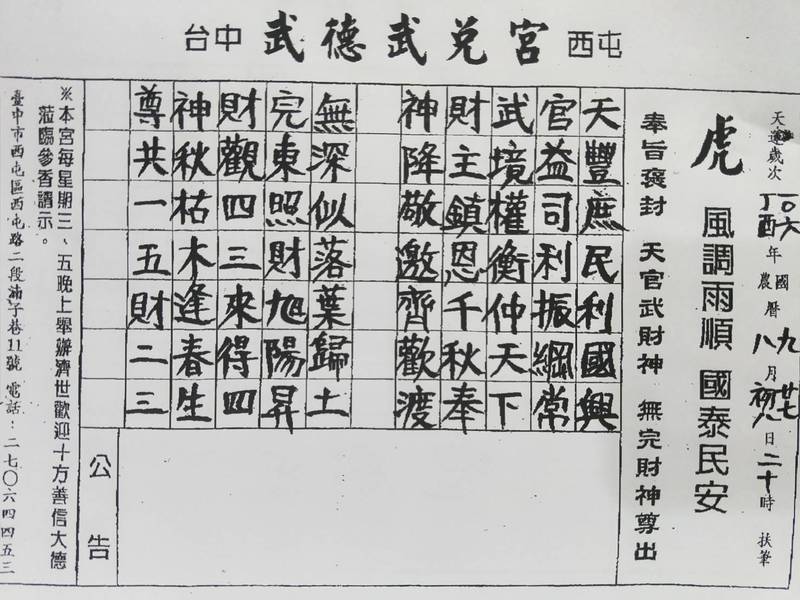 台中 武德武兌宮 西屯
天運歲次丁酉年 國曆九月廿七日 二十時 扶筆
一〇六 農 八 初八
虎 風調雨順 國泰民安
奉旨褒封 天官武財神 無完財神尊出
天豐庶民利國興
官益司利振綱常
武境權衡仲天下
財主鎮恩千秋奉
神降敬邀齊歡渡
無深似落葉歸土
完東照財旭陽昇
財觀四三來得四
神秋枯木逢春生
尊共一五財二三
公告
※本宮每星期三、五晚上舉辦濟世歡迎十方善信大德
蒞臨參香請示。
臺中市西屯區西屯路二段湳子巷11號 電話：二七〇六四四五三